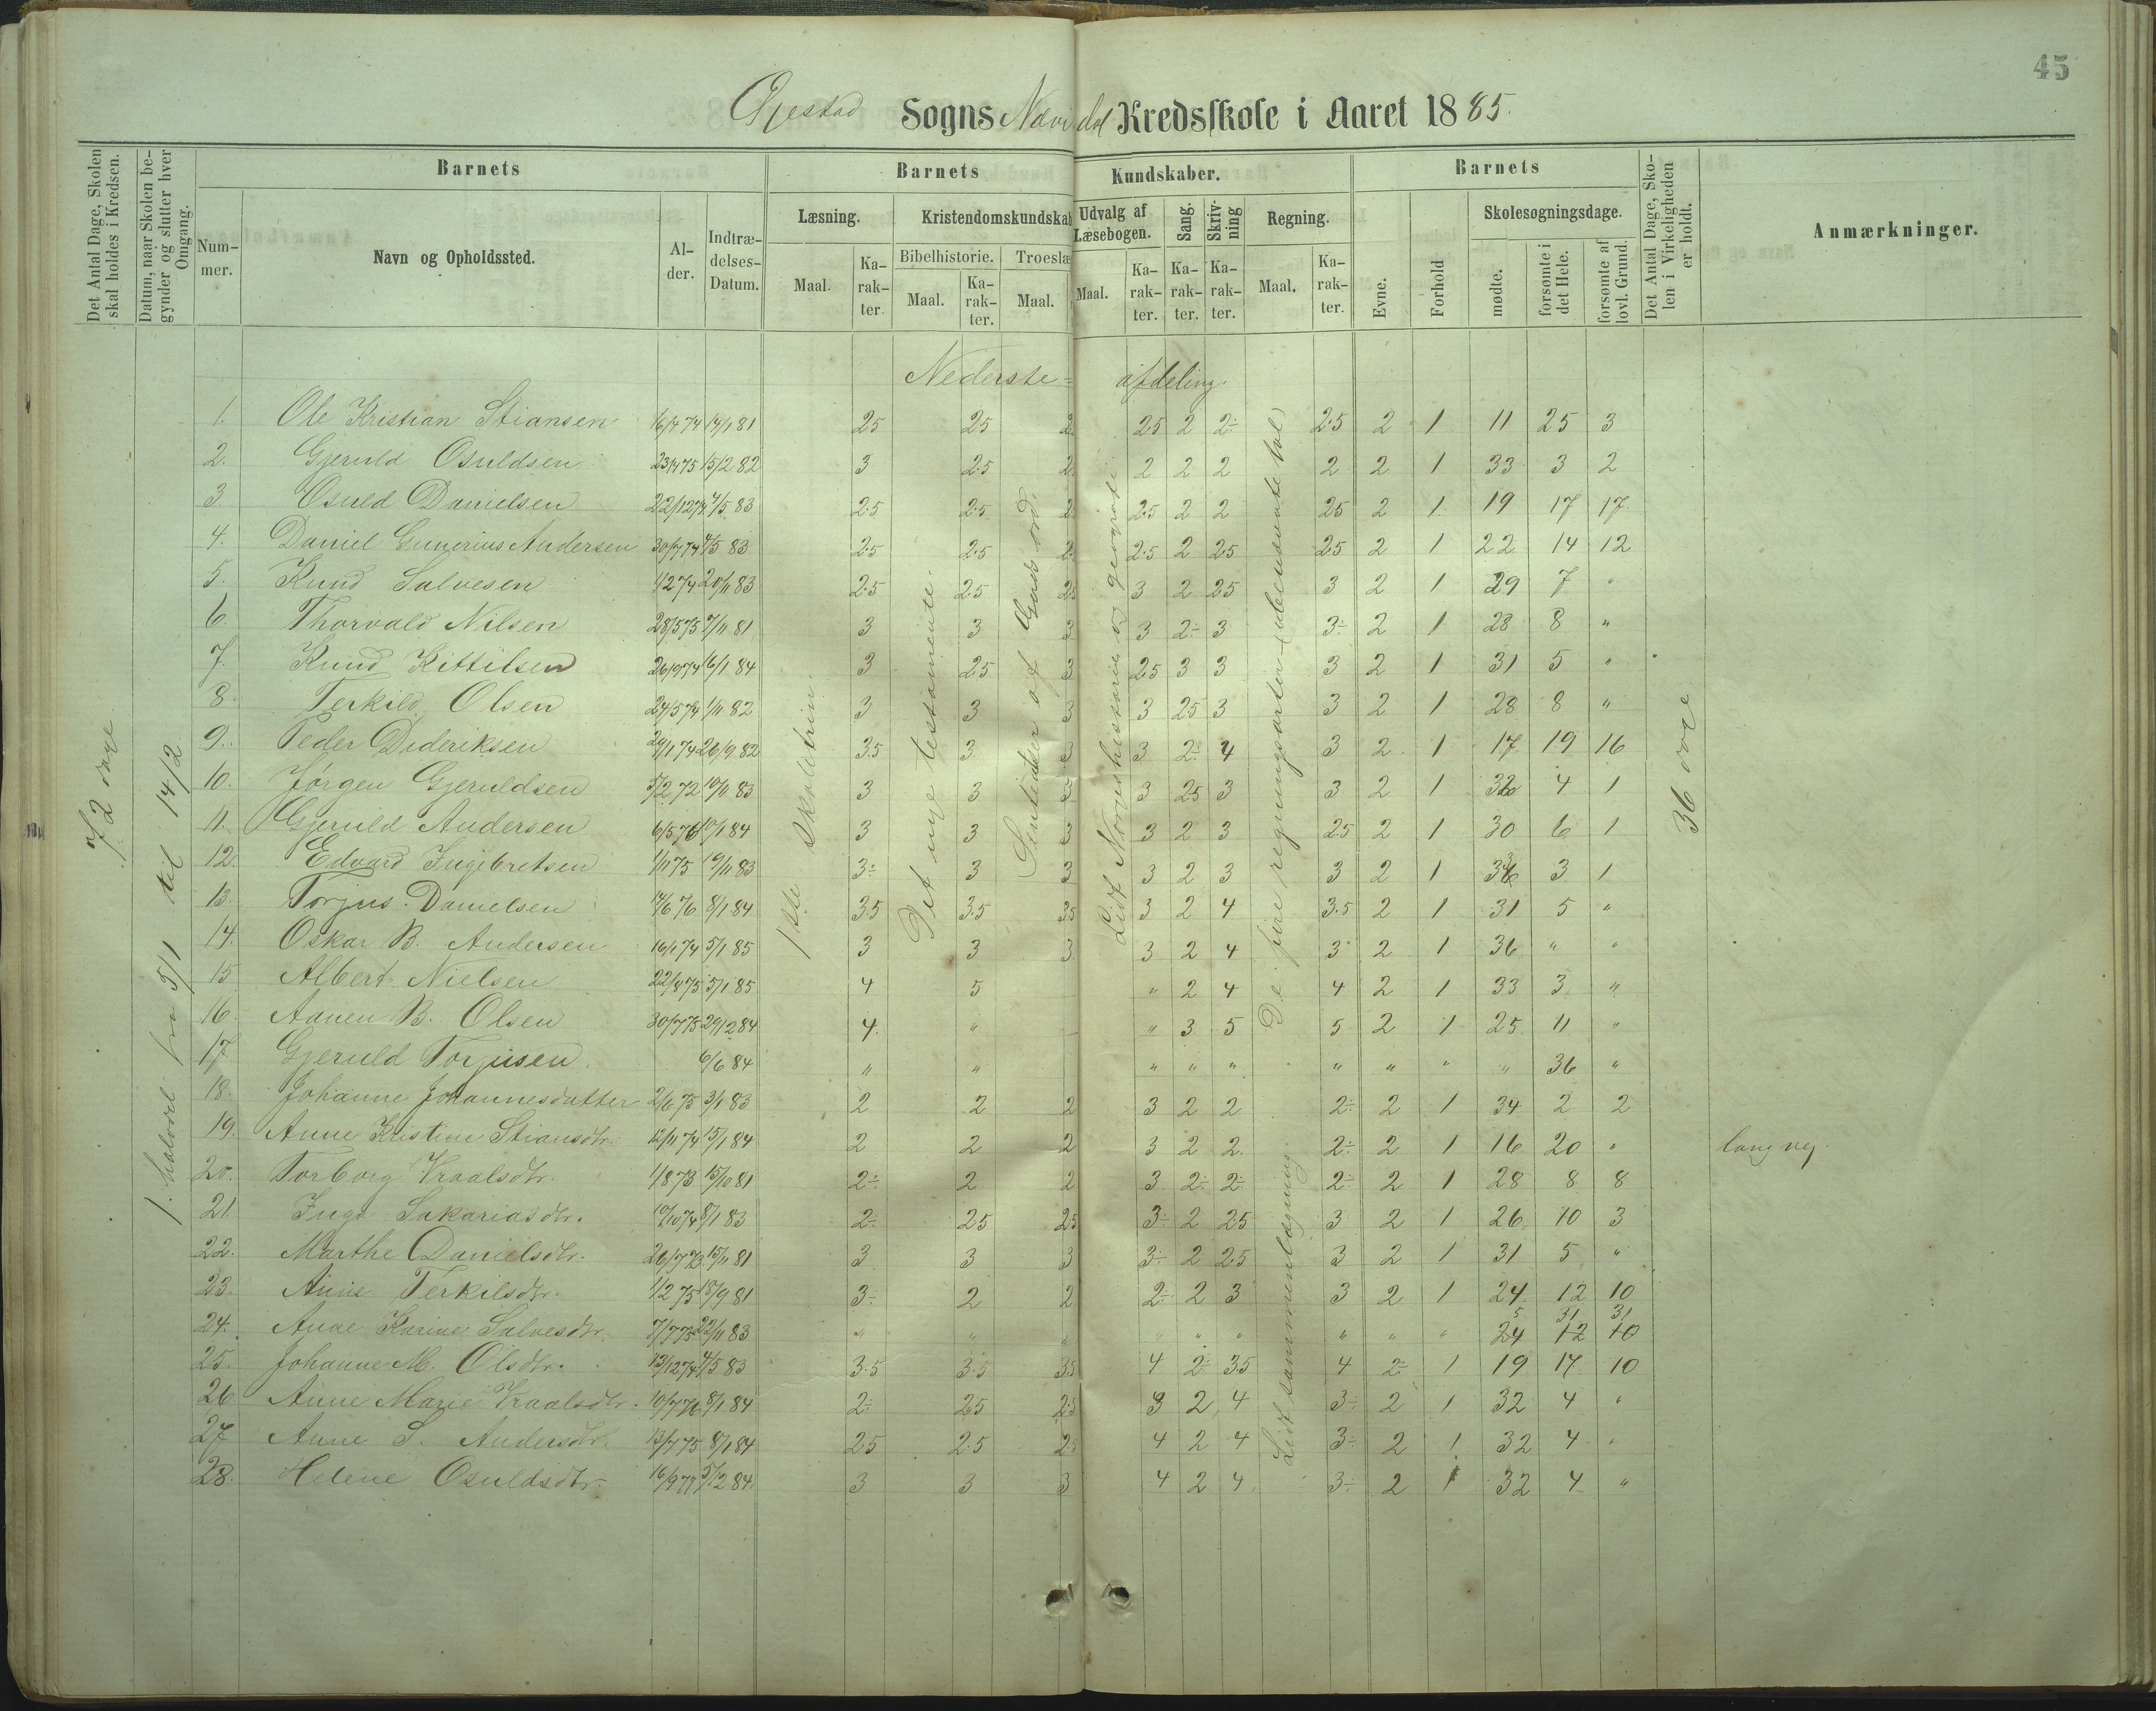 45
Øjestad Sogns Nævisdal Kredsskole i Aaret 1885.
Det Antal Dage, Skolen skal holdes i Kredsen.
Datum, naar Skolen begynder og slutter hver Omgang.
Barnets
Barnets
Kundskaber.
Barnets
Det Antal Dage, Skolen i Virkeligheden er holdt.
Anmærkninger.
Nummer.
Navn og Opholdssted.
Alder.
Indtrædelses-Datum.
Læsning.
Kristendomskundskab
Udvalg af Læsebogen.
Sang.
Skrivning
Regning.
Evne.
Forhold
Skolesøgningsdage.
Maal.
Karakter.
Bibelhistorie.
Maal.
Karakter.
Troeslæ
Maal.
Maal.
Karakter.
Karakter.
Karakter.
Maal.
Karakter.
mødte.
forsømte i det Hele.
forsømte af lovl. Grund.
Nederste= afdeling.
72 dage
1. halvdel fra 5/1 til 14/2
1ste skoletrin
Det nye testamente.
Lidt Norgeshistorie og geografi
De fire regningsarter (ubenævnte tal)
Lidt sammenlægning.
36 dage
1. Ole Kristian Stiansen 16/4 74 14/1 81 25 25 2 25 2 2÷ 2.5 2 1 11 25 3
2. Gjeruld Osuldsen 23/4 75 15/2 82 3 2.5 2 2 2 2 2 2 1 33 3 2
3. Osuld Danielsen 22/12 74 4/5 83 2.5 2.5 2 2.5 2 2 25 2 1 19 17 17
4. Daniel Gunerius Andersen 30/7 74 4/5 83 2.5 2.5 2 2.5 2 2.5 25 2 1 22 14 12
5. Knud Salvesen 1/2 74 20/11 83 2.5 25 25 3 2 25 3 2 1 29 7 "
6. Thorvald Nilsen 28/5 75 7/11 81 3 3 3 3 2÷ 3 3÷ 2 1 28 8 "
7. Knud Kittilsen 26/9 74 16/1 84 3 25 3 25 3 3 3 2 1 31 5 "
8. Terkild Olsen 24/5 74 1/11 82 3 3 3 3 25 3 3 2 1 28 8 "
9. Peder Dideriksen 29/1 74 26/9 82 3.5 3 3 3 2÷ 4 3 2 1 17 19 16
10. Jørgen Gjeruldsen 5/2 72 10/11 83 3 3 3 3 25 3 3 2 1 32 4 1
11. Gjeruld Andersen 6/5 76 10/1 84 3 3 3 3 2 3 2.5 2 1 30 6 1
12. Edvard Ingebretsen 1/11 75 19/11 83 3÷ 3 3 3 2 3 3 2 1 33 3 1
13. Torjus Danielsen 14/6 76 8/1 84 3.5 3.5 3.5 3 2 4 3.5 2 1 31 5 "
14. Oskar B. Andersen 16/1 74 5/1 85 3 3 3 3 2 4 3 2 1 36 " "
15. Albert Nielsen 22/8 75 5/1 85 4 5 " 2 4 4 2 1 33 3 "
16. Aanen B. Olsen 30/7 75 29/2 84 4 " " 3 5 5 2 1 25 11 "
17. Gjeruld Torjusen 6/6 84 " " " " " " " " " 36 "
18. Johanne Johannesdatter 2/6 75 3/1 83 2 2 2 3 2 2 2÷ 2 1 34 2 2
19. Anne Kristine Stiansdtr. 12/11 74 15/1 84 2 2 2 3 2 2 2÷ 2 1 16 20 " lang vej
20. Torborg Vraalsdtr. 1/8 73 15/10 81 2÷ 2 2 3 2÷ 2÷ 2÷ 2 1 28 8 8
21. Inga Sakariasdtr. 10/10 74 8/1 83 2÷ 25 25 3÷ 2 25 3 2 1 26 10 3
22. Marthe Danielsdtr. 26/7 73 15/11 81 3 3 3 3÷ 2 25 3 2 1 31 5 "
23. Anne Terkilsdtr. 1/2 75 18/9 81 3÷ 2 2 2÷ 2 3 3 2 1 24 12 10
5 31 31
24. Anne Karine Salvesdtr. 7/7 73 22/11 83 " " " " " " " " " 24 12 10
25. Johanne M. Olsdtr. 13/12 74 4/5 83 3.5 3.5 3.5 4 2÷ 35 4 2÷ 1 19 17 10
26. Anne Marie Vraalsdtr. 10/7 76 8/1 84 2÷ 25 2.5 3 2 4 3÷ 2 1 32 4 "
27. Anne S. Andersdtr. 13/7 75 8/1 84 25 2.5 2.5 4 2 4 3÷ 2 1 32 4 "
28. Helene Osuldsdtr. 16/9 77 5/12 84 3 3 3 4 2 4 3÷ 2 1 32 4 "